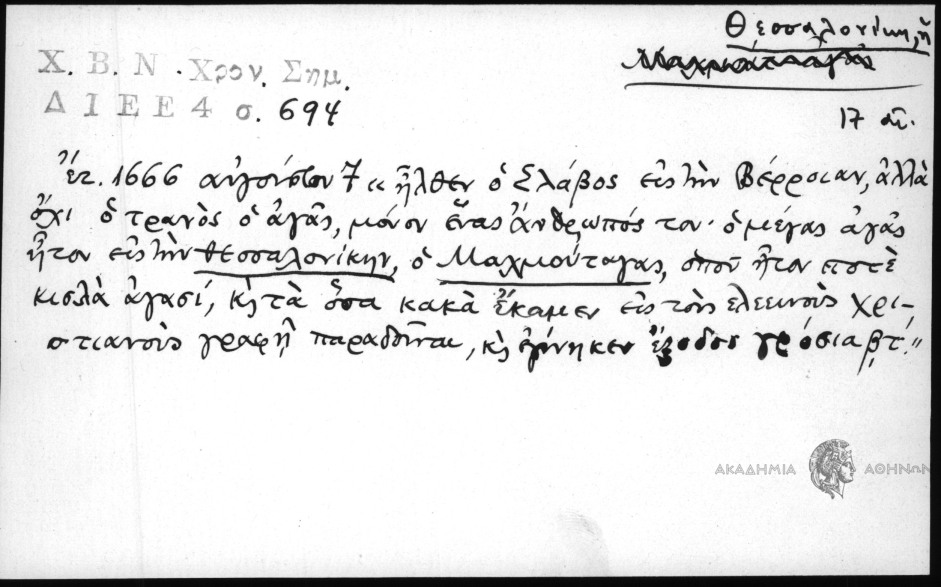 Θεσσαλονίκη, ἡ
Μαχμουταγᾶς
Χ. Β. Ν. Χρον. Σημ.
Δ Ι Ε Ε 4 σ. 694
17 αἰ.
Ἔτ. 1666 αὐγούστου 7 "ἦλθεν ὁ Σλάβος εἰς τὴν Βέρροιαν, ἀλλὰ
ὄχι ὁ τρανὸς ὁ ἀγᾶς, μόνον ἕνας ἄνθρωπός του· ὁ μέγας ἀγᾶς
ἦτον εἰς τὴν Θεσσαλονίκην, ὁ Μαχμούταγας, ὁποῦ ἦτον ποτὲ
κισλὰ ἀγασί, κὶ τὰ ὅσα κακὰ ἔκαμεν εἰς τοὺς ἐλεεινοὺς χρι-
στιανοὺς γραφῇ παραδοῦναι, κὶ ἐγίνηκεν ἔξοδος γρόσια βτ´."
ΑΚΑΔΗΜΙΑ ΑΘΗΝΩΝ